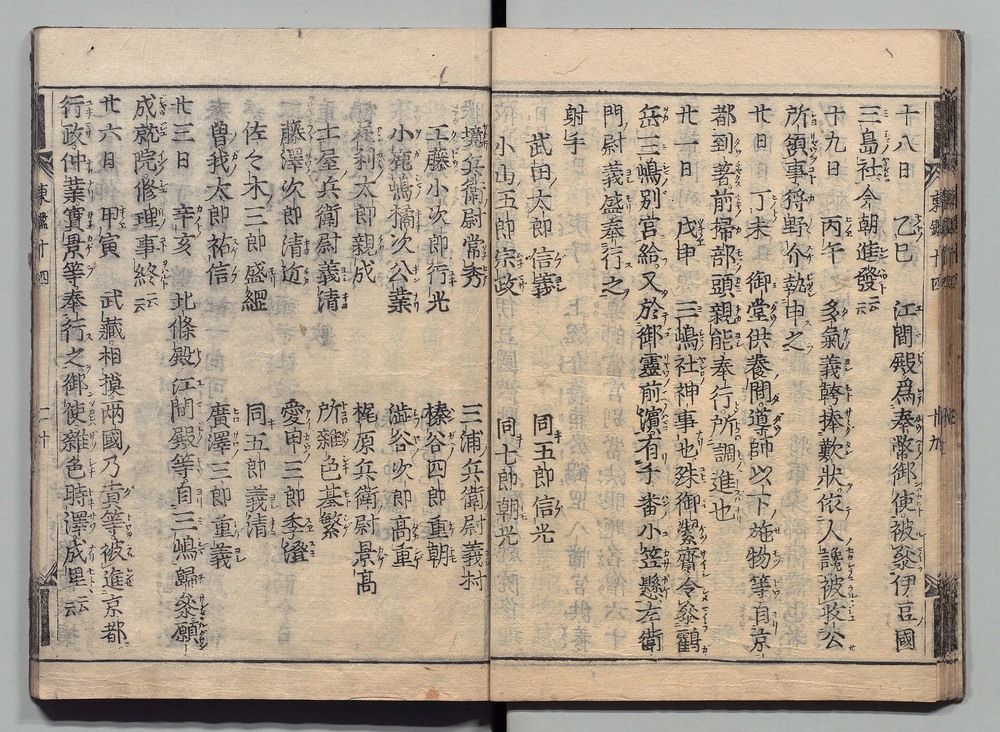 十八日 乙巳 江間殿爲奉幣御使被參伊豆國
三島社今朝進發云云
十九日 丙午 多氣義幹捧歎状依人讒被收公
所領事狩野介執申之
廿日 丁未 御堂供養間導師以下施物等自京
都到著前掃部頭親能奉行所調進也
廿一日 戊申 三嶋社神事也殊御潔齋令參鶴
岳三嶋別宮給又於御靈前濱有千番小笠懸左衛
門尉義盛奉行之
射手
武田太郎信義 同五郎信光
小山五郎宗政 同七郎朝光
境兵衛尉常秀 三浦兵衛尉義村
工藤小次郎行光 榛谷四郎重朝
小鹿嶋橘次公業 澁谷次郎高重
氏家太郎公頼
足利太郎親成 梶原兵衛尉景高
土屋兵衛尉義清 所雜色基繁
藤澤次郎清近 愛甲三郎季澄
佐々木三郎盛綱 同五郎義清
曽我太郎祐信 廣澤三郎重義
廿三日 辛亥 北條殿江間殿等自三嶋歸參願
成就院修理事終云云
廿六日 甲寅 武藏相摸兩國乃貢等被進京都
行政仲業實景等奉行之御使雜色時澤成里云云
東鑑十四
二十
東鑑十四
十九